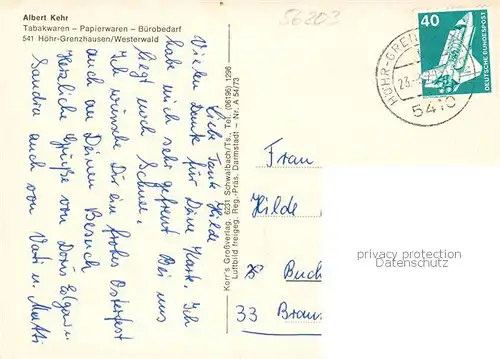 Albert Kehr
Tabakwaren – Papierwaren – Bürobedarf
541 Höhr-Grenzhausen/Westerwald
56203
Liebe Tante Hilde
Vielen Dank für Deine Karte. Ich
habe mich sehr gefreut Bei uns
liegt noch Schnee.
Ich wünsche Dir ein frohes Osterfest
auch an Deinen Besuch
Herzliche Grüße von Doris Edgar u.
Sandra auch von Vati u. Mutti
Korr's Großverlag, 6231 Schwalbach/Ts., Tel. (06196) 1296
Luftbild freigeg. Reg.-Präs. Darmstadt – Nr. A 54/73
40
DEUTSCHE BUNDESPOST
HÖHR-GREN
23.
5410
Frau
Hilde
Buch
33 Braun
privacy protection
Datenschutz